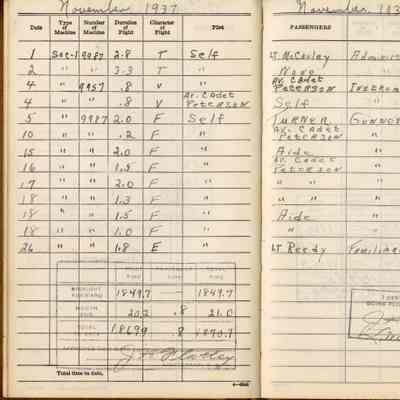 November 1937
Date Type of Machine Number of Machine Duration of Flight Character of Flight Pilot
1 9987 2.8 T Self
2 " " 3.3 T "
4 " 9957 .8 V "
4 " " .8 V Av. Cadet PETERSON
5 " 9987 2.0 F Self
10 " " .2 F "
15 " " 2.0 F "
16 " " 1.5 F "
17 " " 2.0 F "
18 " " 1.3 F "
18 " " 1.5 F "
18 " " 1.0 F "
26 " " 1.8 E "
TOTAL TIME
BROUGHT FORWARD 1849.7 — 1849.7
MONTH 20.2 .8 21.0
TOTAL 1869.9 .8 1870.7
Total time to date,
November, 193
PASSENGERS
LT McCauley
None
Av. Cadet PETERSON
Self
TURNER GUNNER
Av. Cadet PETERSON "
Aide "
Av. Cadet PETERSON "
" " "
" " "
Aide "
" "
LT Reedy